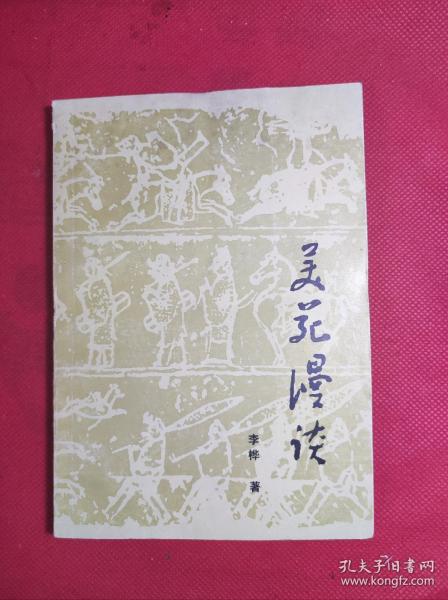 美苑漫谈
李桦 著
孔夫子旧书网
www.kongfz.com